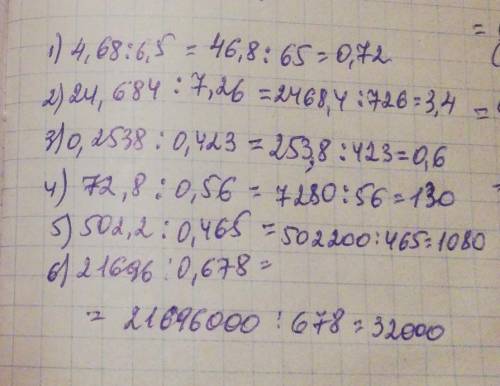 1) 4,68:6,5 = 46,8:65=0,72
2) 24,684:7,26 =2468,4:726=3,4
3) 0,2538:0,423=253,8:423=0,6
4) 72,8:0,56=7280:56=130
5) 502,2:0,465=502200:465=1080
6) 21696:0,678=
= 21696000:678=32000